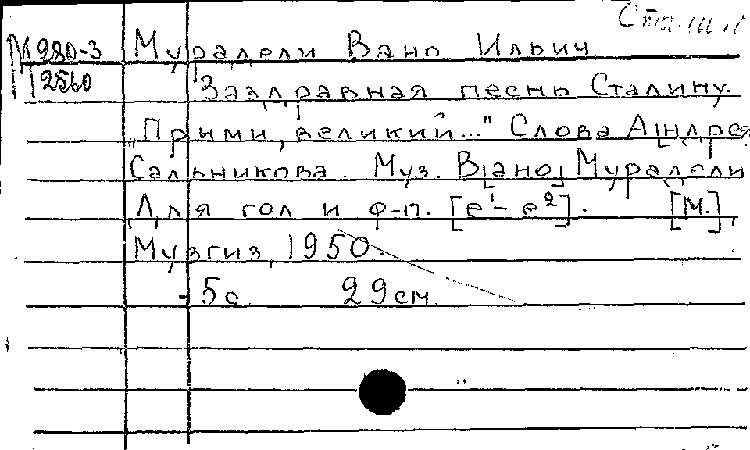 Сталин
М 980-3 Мурадели Вано Ильич
2560 Заздравная песнь Сталину.
„Прими, великий..." Слова А[ндрея
Сальникова. Муз. В[ано] Мурадели
Для гол и ф-п. [е¹- е²]. [М.],
Музгиз, 1950.
5с. 29см.